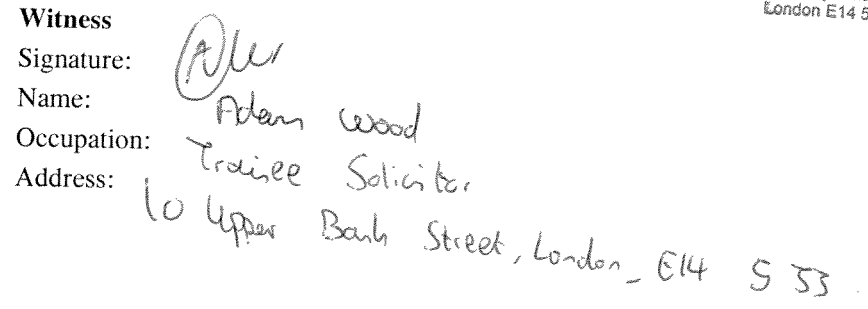 London E14 5
Witness
Signature:
Name: Adam Wood
Occupation: Trainee Solicitor
Address: 10 Upper Bank Street, London_ E14 5JJ